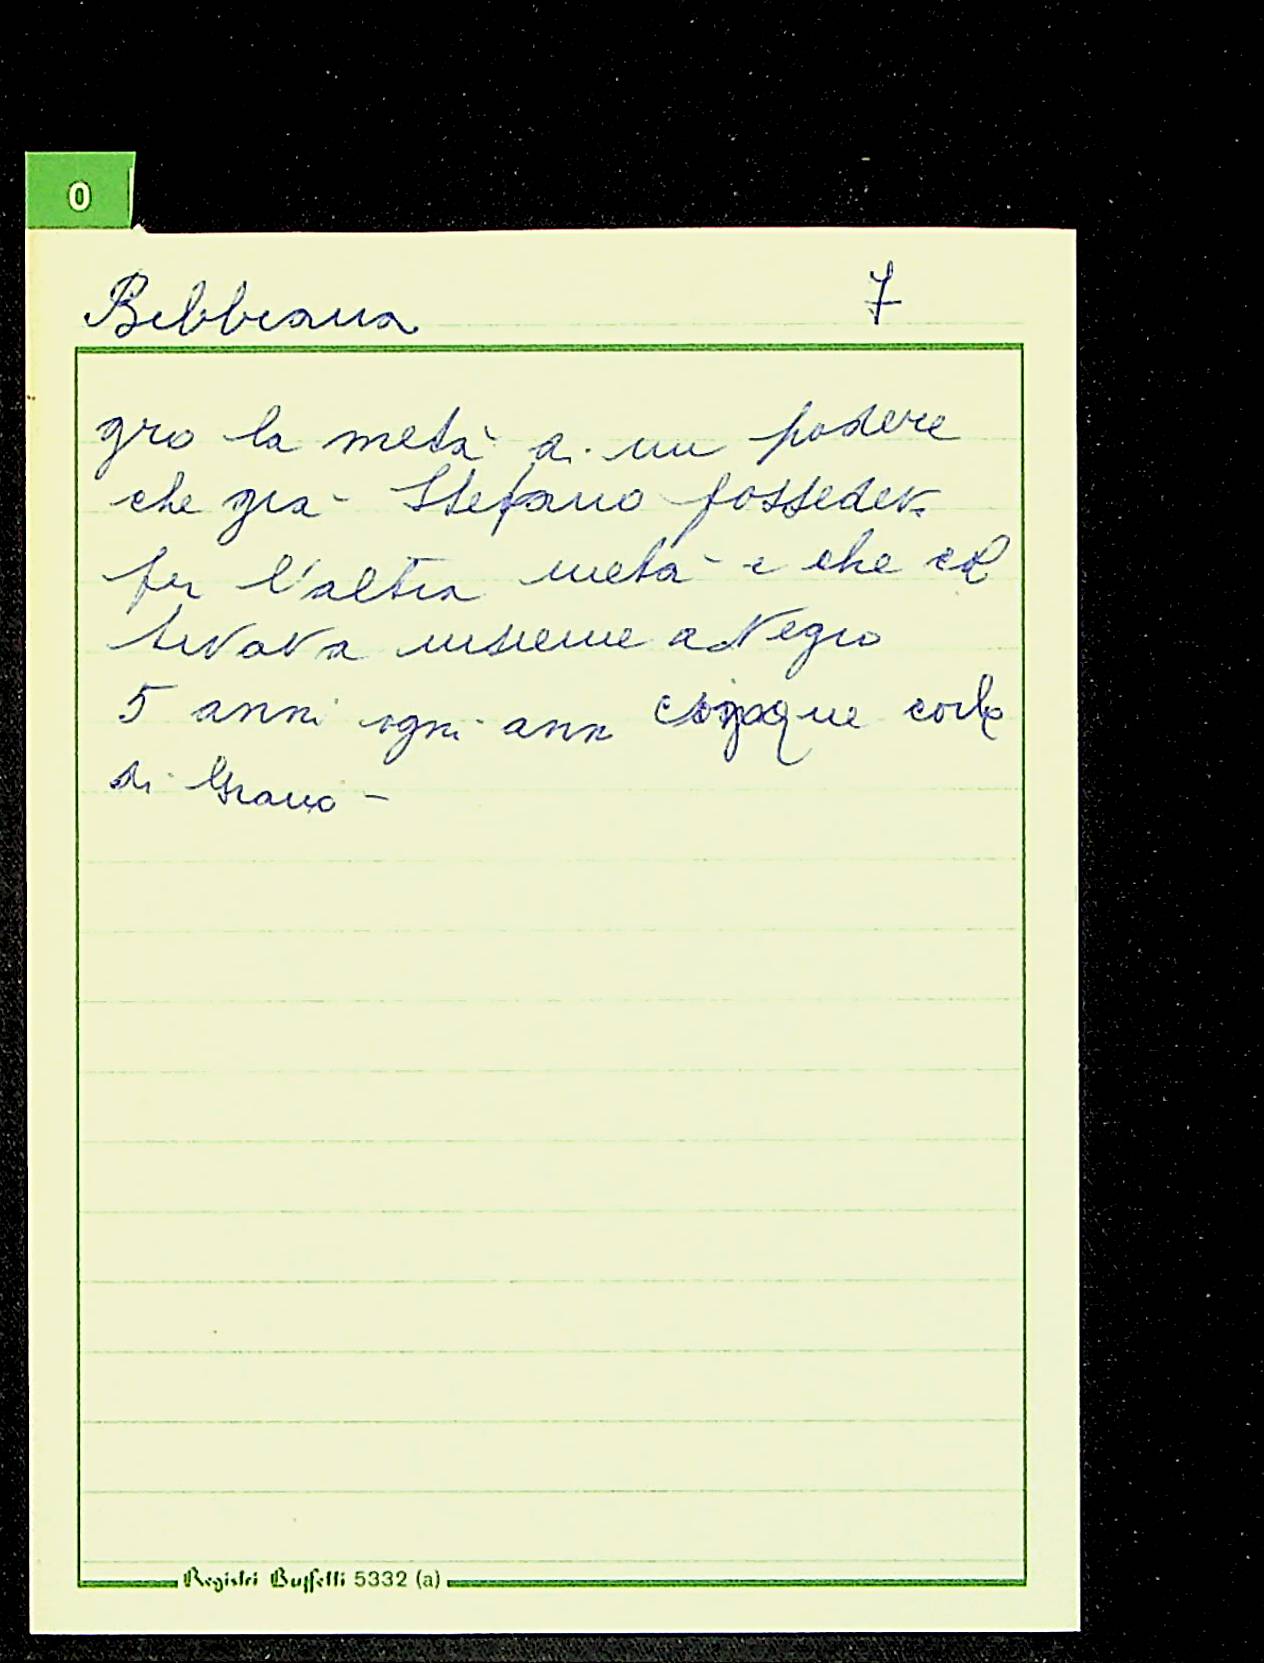 0
Bibbiana 7
gro la metà di un podere
che già Stefano possedev.
per l'altra metà e che col
tivava insieme a Negro
5 anni ogni ann cinque corbe
di Grano -
Registri Buffetti 5332 (a)